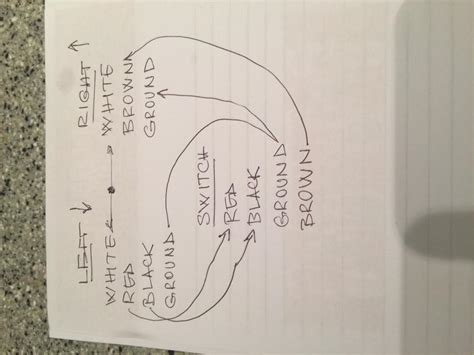 LEFT ↓
WHITE
RED
BLACK
GROUND
RIGHT ↑
WHITE
BROWN
GROUND
SWITCH
RED
BLACK
GROUND
BROWN